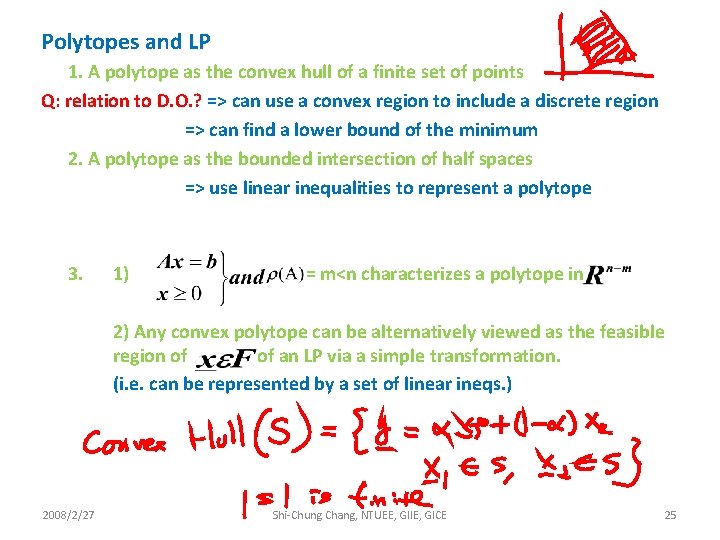 Polytopes and LP
1. A polytope as the convex hull of a finite set of points
Q: relation to D.O.? => can use a convex region to include a discrete region
=> can find a lower bound of the minimum
2. A polytope as the bounded intersection of half spaces
=> use linear inequalities to represent a polytope
3. 1) Ax = b
x ≥ 0 } and ρ(A) = m<n characterizes a polytope in R^{n-m}
2) Any convex polytope can be alternatively viewed as the feasible
region of xεF of an LP via a simple transformation.
(i.e. can be represented by a set of linear ineqs.)
Convex Hull(S) = {y = α + (1-α) x₂
x₁ ∈ S, x₂ ∈ S}
is finite
2008/2/27 Shi-Chung Chang, NTUEE, GIIE, GICE 25